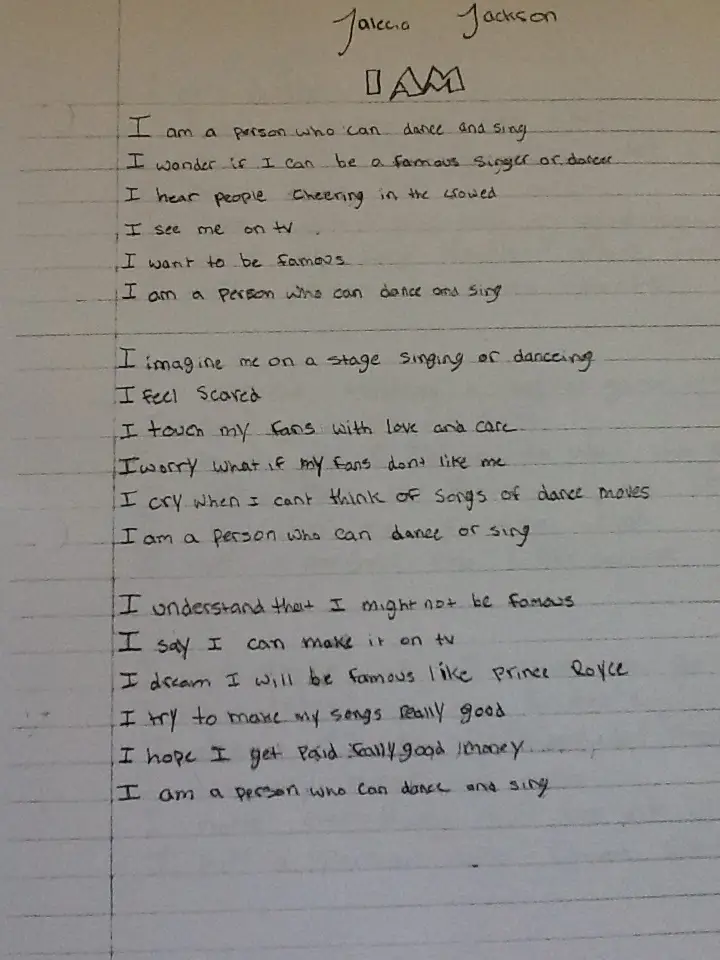 Jalecia Jackson
I AM
I am a person who can dance and sing
I wonder if I can be a famous singer or dancer
I hear people cheering in the crowed
I see me on tv
I want to be famous
I am a person who can dance and sing
I imagine me on a stage singing or danceing
I feel scared
I touch my fans with love and care
I worry what if my fans dont like me
I cry when I cant think of songs of dance moves
I am a person who can dance or sing
I understand that I might not be famous
I say I can make it on tv
I dream I will be famous like prince Royce
I try to make my songs really good
I hope I get paid really good money
I am a person who can dance and sing